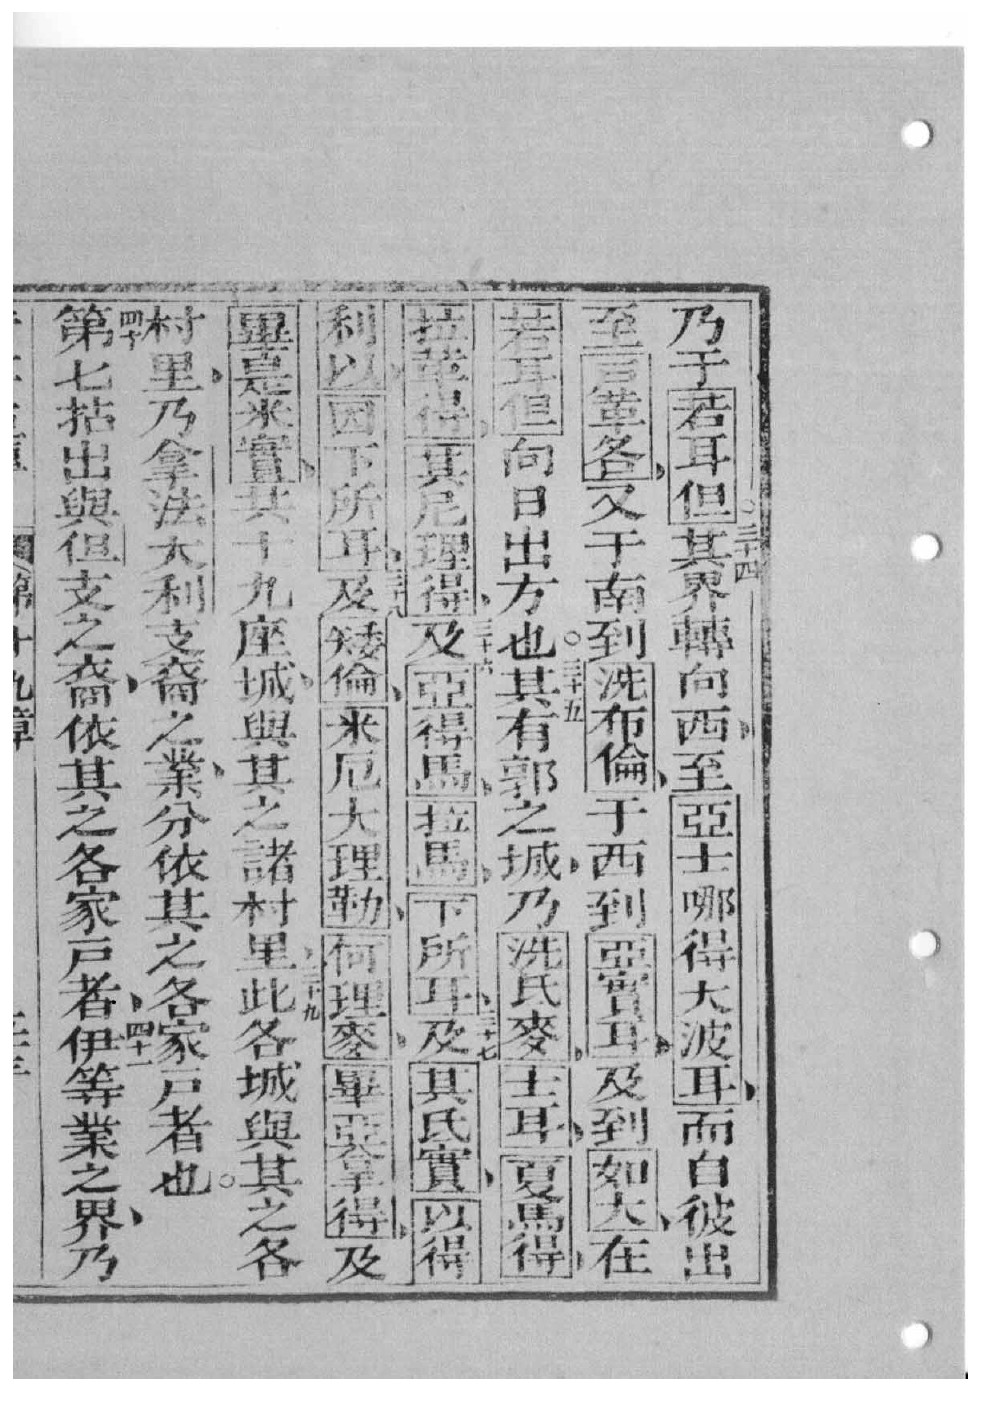 乃于若耳但○三十四其界轉向西至亞士哪得大波耳而自彼出
至言革各又于南到洗布倫于西到亞實耳及到如大在
若耳但向日出方也○三十五其有郭之城乃洗氏麥士耳夏馬得
拉革得其尼理得三十六及亞得馬拉馬下所耳三十七及其氏實以得
利以因下所耳及矮倫米厄大理勒何理麥畢亞拿得及
畢是米實其十九座城與其之諸村里三十九此各城與其之各
村里乃拿法大利支裔之業分依其之各家戶者也○
四十第七拈出與但支之裔依其之各家戶者四十一伊等業之界乃
第十九章